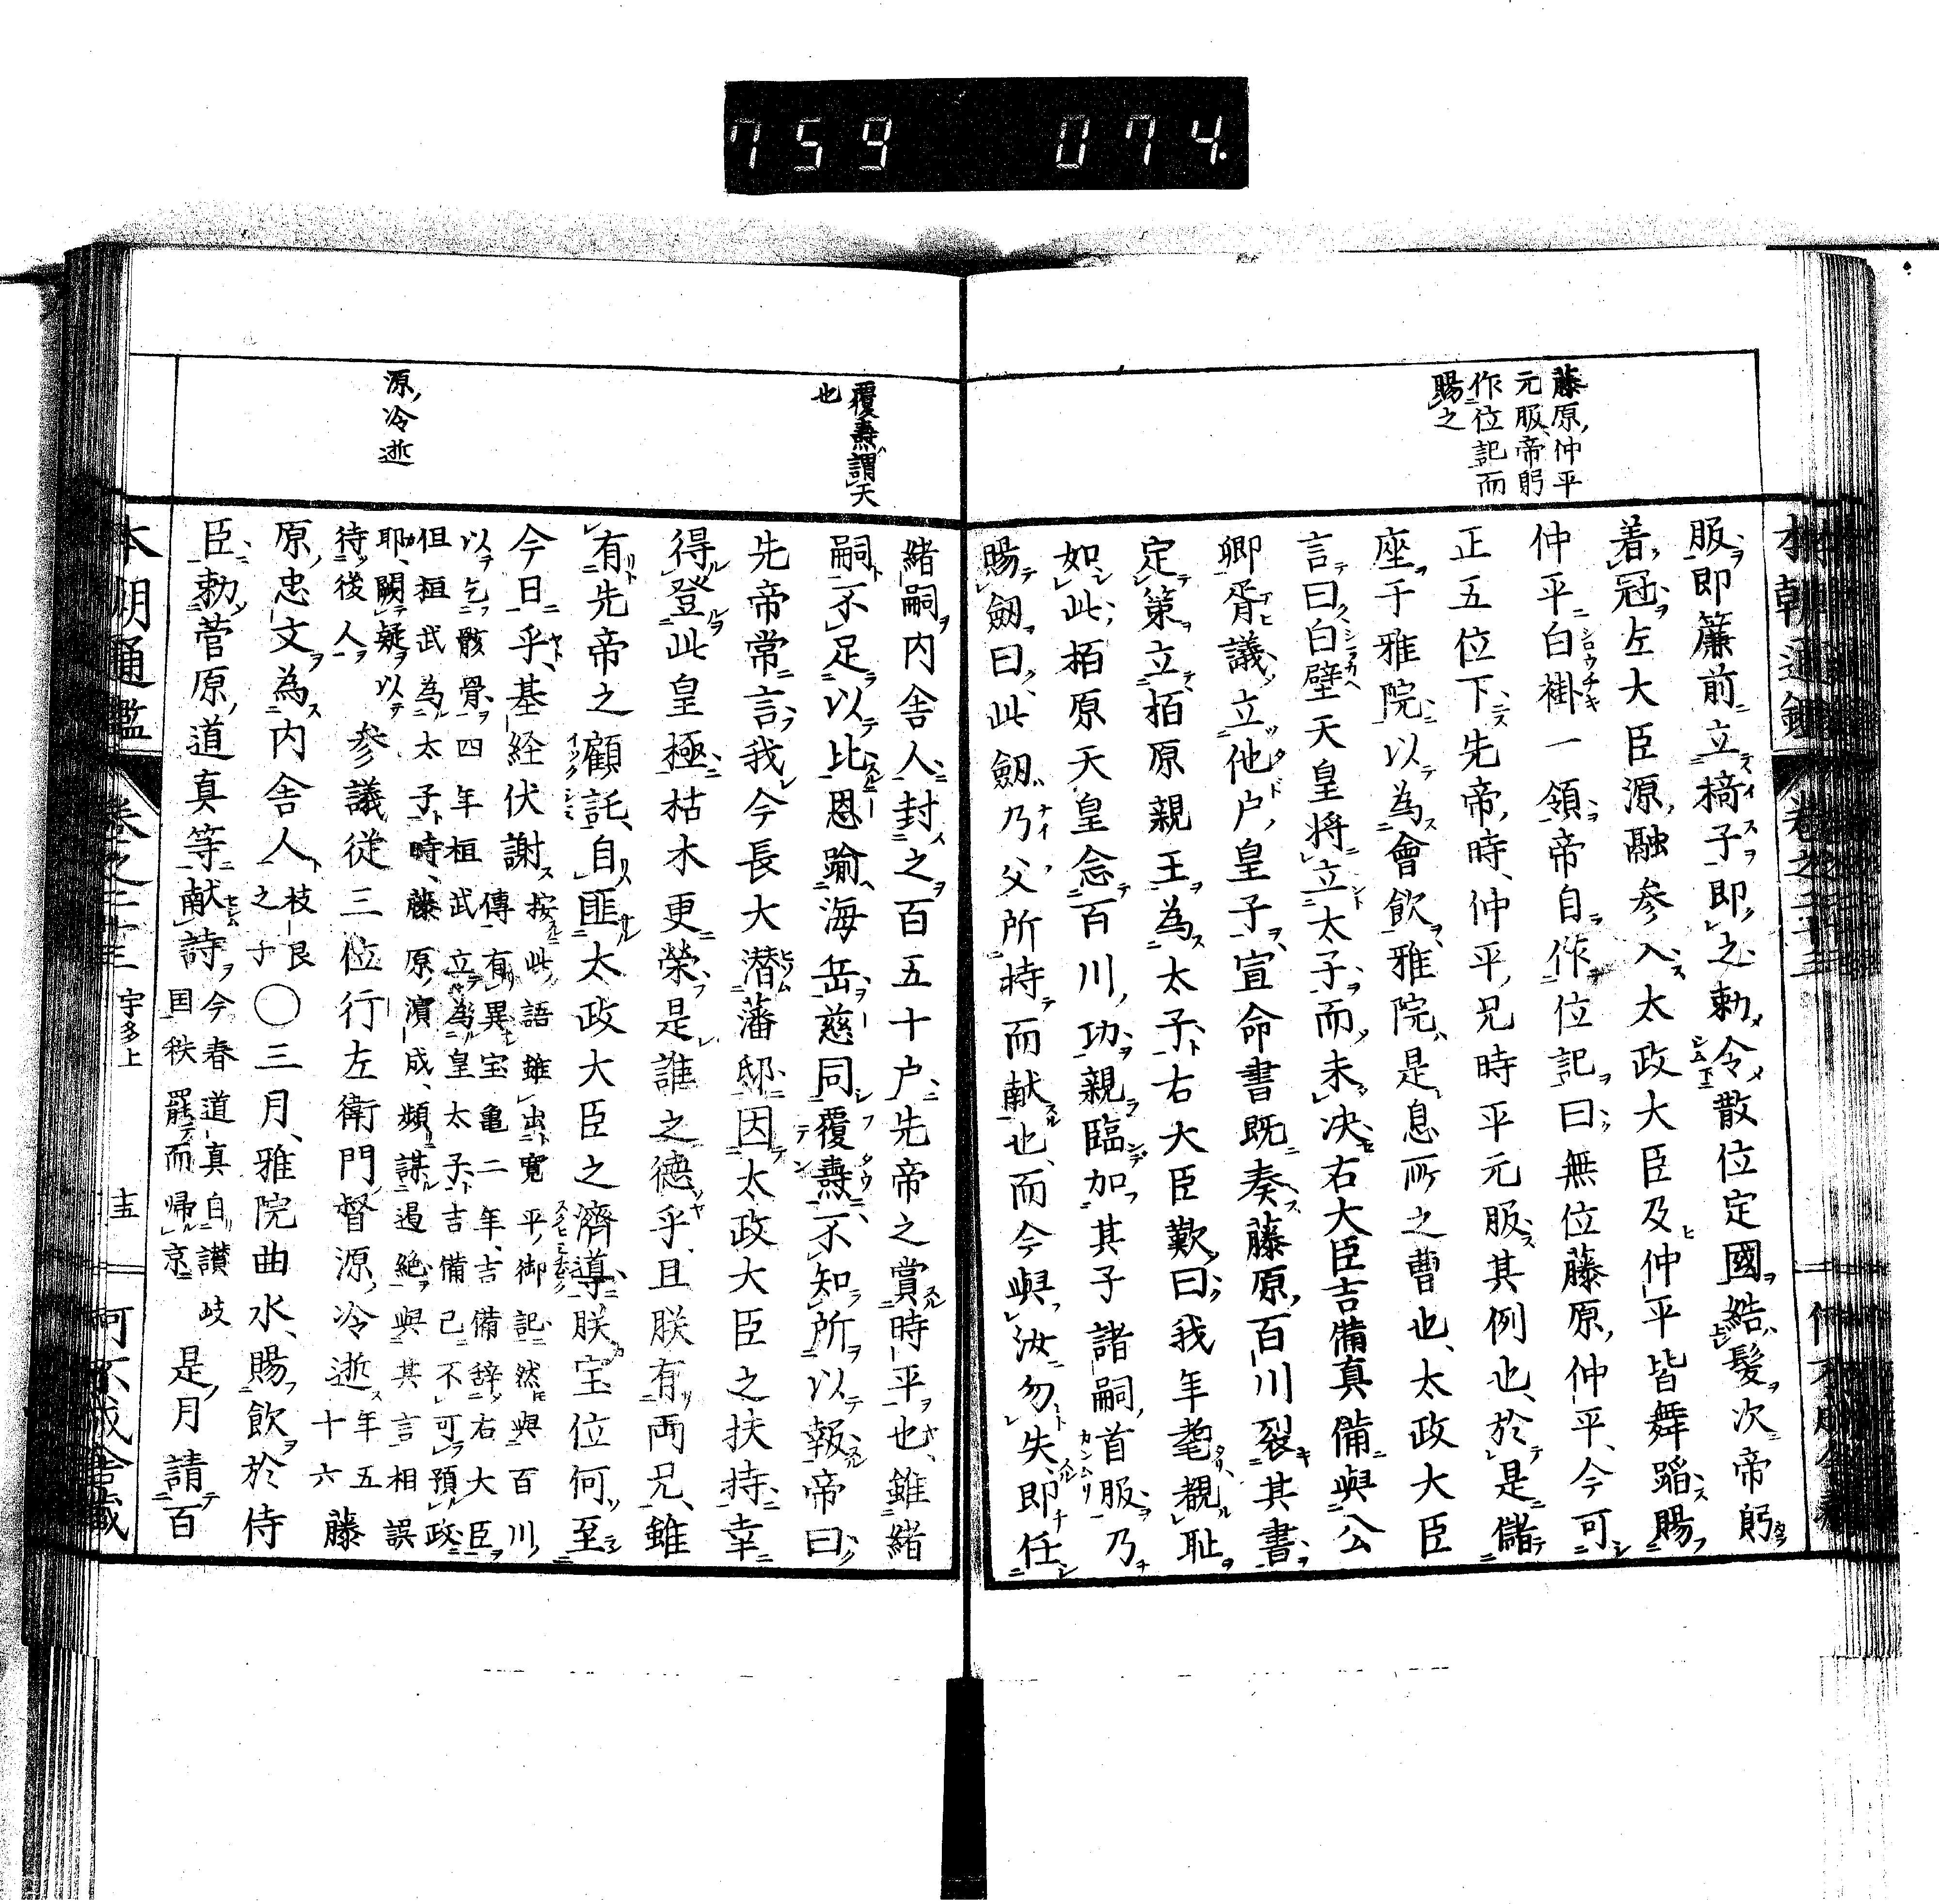 759 074.
藤原仲平
元服帝躬
作位記而
賜之
服即簾前立椅子即之勅令散位定國結髮次帝躬
着冠左大臣源融参入太政大臣及仲平皆舞蹈賜
仲平白褂一領帝自作位記曰無位藤原仲平今可
正五位下先帝時仲平兄時平元服其例也於是儲
座于雅院以為會飲雅院是息所之曹也太政大臣
言曰白壁天皇将立太子而未决右大臣吉備真備與公
卿胥議立他戸皇子宣命書既奏藤原百川裂其書
定策立栢原親王為太子右大臣歎曰我年耄覩耻
如此栢原天皇念百川功親臨加其子諸嗣首服乃
賜劔曰此劔乃父所持而献也而今與汝勿失即任
覆燾謂天
也
源冷逝
緒嗣内舎人封之百五十户先帝之賞時平也雖緒
嗣不足以比恩踰海岳慈同覆燾不知所以報帝曰
先帝常言我今長大潜藩邸因太政大臣之扶持幸
得登此皇極枯木更榮是誰之德乎且朕有兩兄雖
有先帝之顧託自匪太政大臣之濟導朕宝位何至
今日乎基経伏謝
按此語雖出寛平御記然與百川
傳有異宝亀二年吉備辞右大臣
以乞骸骨四年桓武立為皇太子吉備已不可預政
但桓武為太子時藤原濱成頻謀遏絶與其言相誤
耶闕疑以
待後人
参議從三位行左衛門督源冷逝
年五
十六
藤
原忠文為内舎人
枝良
之子
〇三月雅院曲水賜飲於侍
臣勅菅原道真等献詩
今春道真自讃岐
国秩罷而帰京
是月請百
本朝通鑑 巻之二十三 宇多上 十五